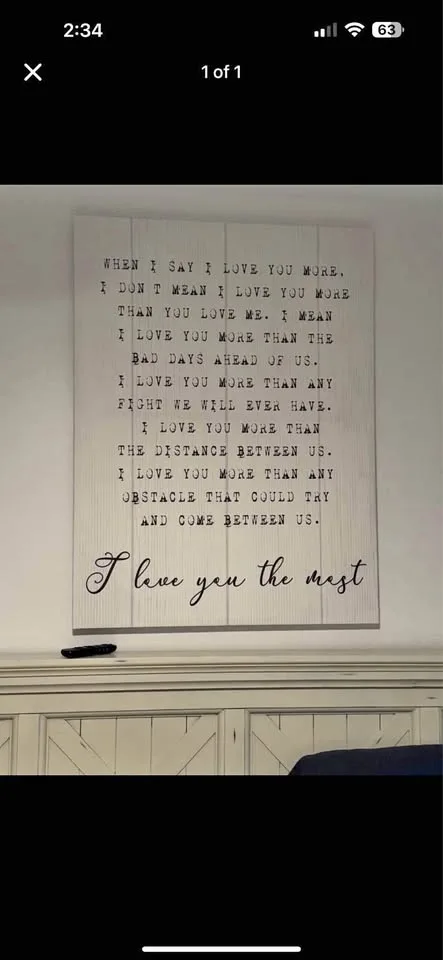 2:34
63
1 of 1
WHEN I SAY I LOVE YOU MORE,
I DON'T MEAN I LOVE YOU MORE
THAN YOU LOVE ME. I MEAN
I LOVE YOU MORE THAN THE
BAD DAYS AHEAD OF US.
I LOVE YOU MORE THAN ANY
FIGHT WE WILL EVER HAVE.
I LOVE YOU MORE THAN
THE DISTANCE BETWEEN US.
I LOVE YOU MORE THAN ANY
OBSTACLE THAT COULD TRY
AND COME BETWEEN US.
I love you the most